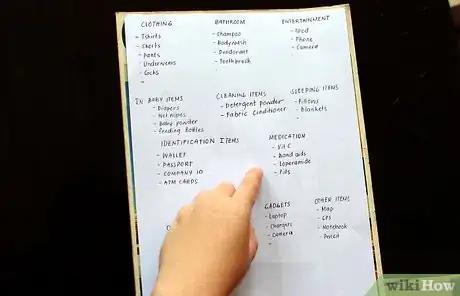 CLOTHING
- Tshirts
- Shorts
- Pants
- Underwears
- Socks
-
BATHROOM
- Shampoo
- Bodywash
- Deodorant
- Toothbrush
-
ENTERTAINMENT
- IPod
- Phone
- Camera
IN BABY ITEMS
- Diapers
- Wet wipes
- Baby powder
- Feeding Bottles
CLEANING ITEMS
- Detergent powder
- Fabric Conditioner
SLEEPING ITEMS
- Pillows
- Blankets
-
IDENTIFICATION ITEMS
- WALLET
- PASSPORT
- COMPANY ID
- ATM CARDS
MEDICATION
- Vit C
- Band aids
- Loperamide
- Pills
GADGETS
- Laptop
- Chargers
- Camera
-
OTHER ITEMS
- Map
- GPS
- Notebook
- Pencil
wikiHow